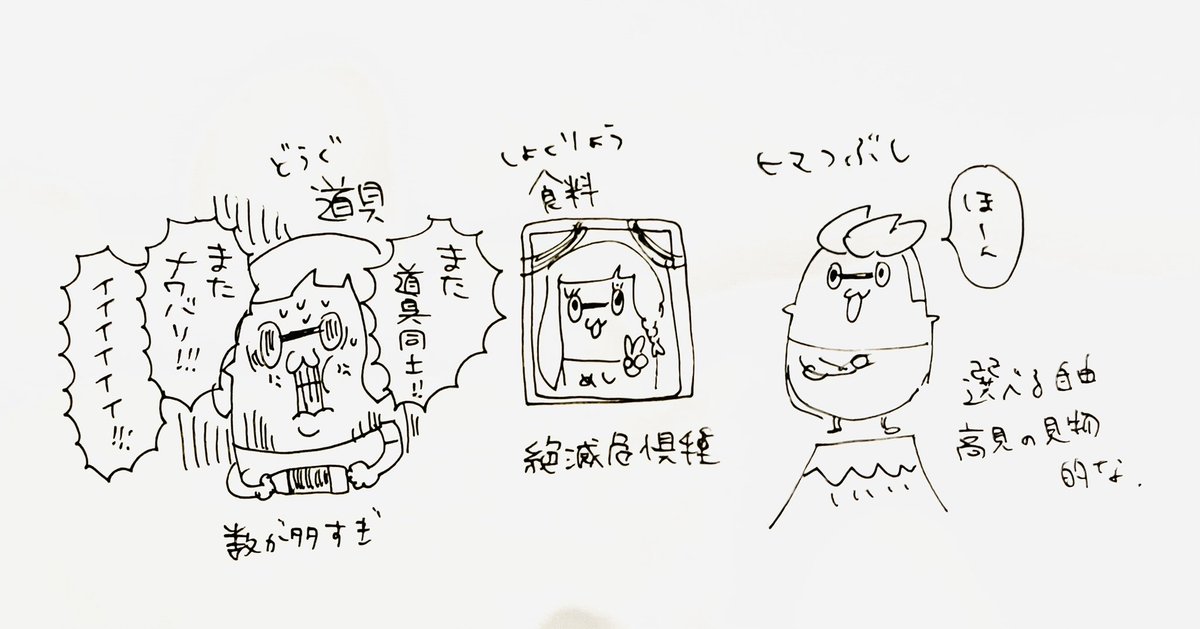 どうぐ
道具
また
道具同士!!
また
ナワバリ!!!
イイイイイイ!!!
数が多すぎ
しょくりょう
食料
めし
絶滅危惧種
ヒマつぶし
ほーん
選べる自由
高見の見物
的な.